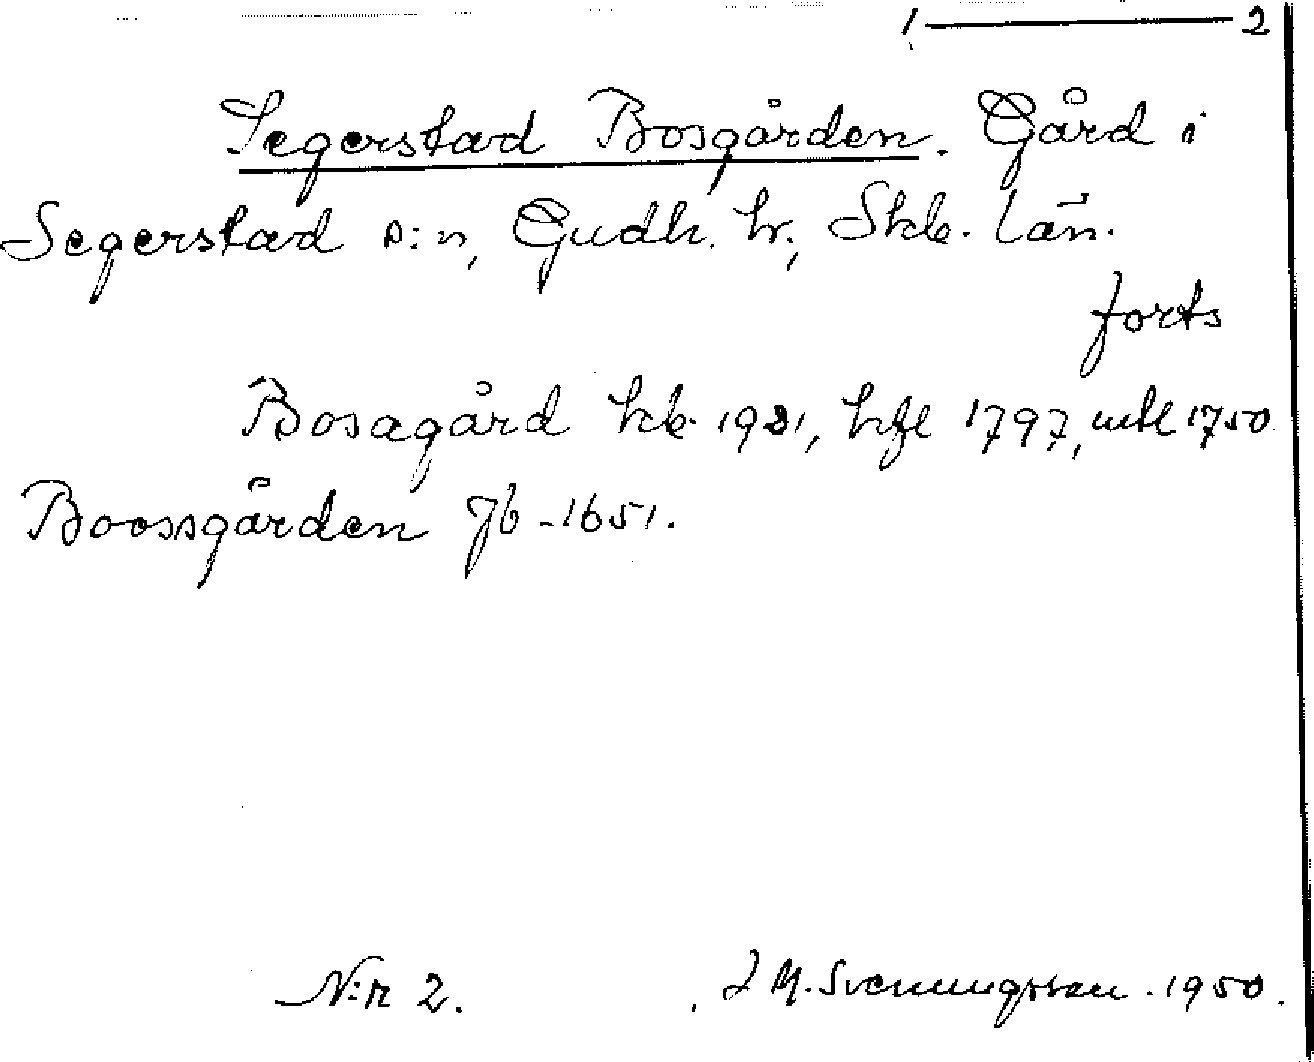 1 — 2
Segerstad Bosgården. Gård i
Segerstad s:n, Gudh. hr, Skb. län.
forts
Bosagård kb. 1921, hfl 1797, mtl 1750
Boossgården Jb - 1651.
N:r 2. J M. Svenungsson. 1950.